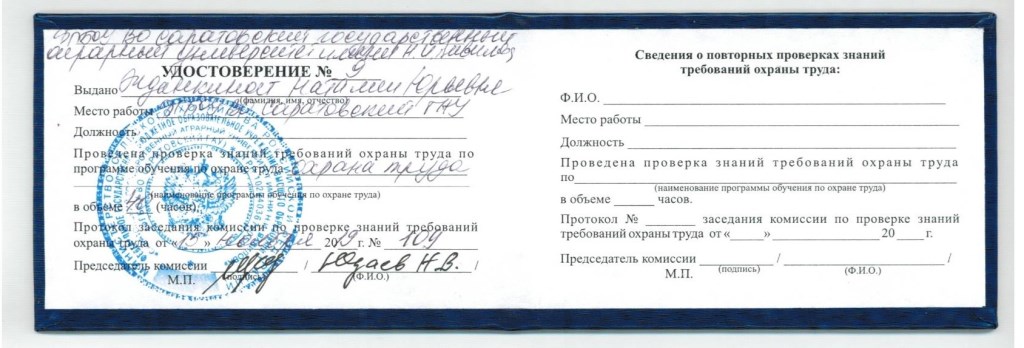 ФГБОУ ВО Саратовский государственный
аграрный университет имени Н.И. Вавилова
УДОСТОВЕРЕНИЕ № 9
Выдано Наталии Юрьевне
(фамилия, имя, отчество)
Место работы Саратовский ГАУ
Должность
Проведена проверка знаний требований охраны труда по
программе обучения по охране труда охрана труда
(наименование программы обучения по охране труда)
в объеме 40 (часов).
Протокол заседания комиссии по проверке знаний требований
охраны труда от « 15 » ноября 2019 г. № 109
Председатель комиссии / Юзаев Н.В. /
М.П. (подпись) (Ф.И.О.)
Сведения о повторных проверках знаний
требований охраны труда:
Ф.И.О.
Место работы
Должность
Проведена проверка знаний требований охраны труда
по
(наименование программы обучения по охране труда)
в объеме часов.
Протокол № заседания комиссии по проверке знаний
требований охраны труда от « » 20 г.
Председатель комиссии / /
М.П. (подпись) (Ф.И.О.)